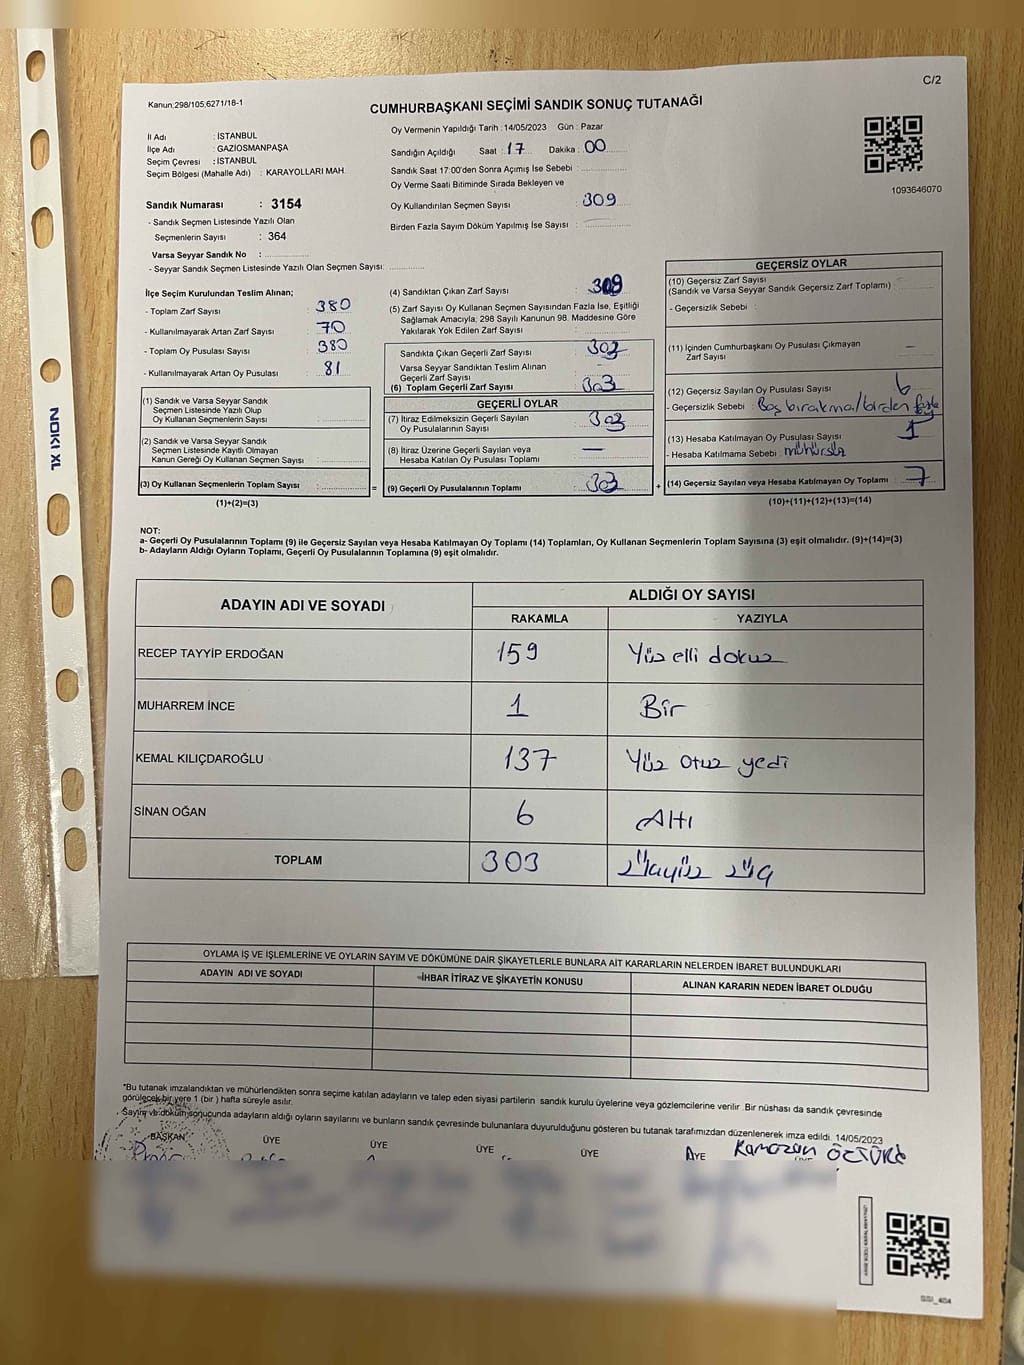 C/2
Kanun:298/105,6271/18-1
CUMHURBAŞKANI SEÇİMİ SANDIK SONUÇ TUTANAĞI
İl Adı : İSTANBUL
İlçe Adı : GAZİOSMANPAŞA
Seçim Çevresi : İSTANBUL
Seçim Bölgesi (Mahalle Adı) : KARAYOLLARI MAH.
Oy Vermenin Yapıldığı Tarih : 14/05/2023 Gün : Pazar
Sandığın Açıldığı Saat : 17 Dakika : 00
Sandık Saat 17:00'den Sonra Açımış İse Sebebi :
Oy Verme Saati Bitiminde Sırada Bekleyen ve
Oy Kullandırılan Seçmen Sayısı : 309
Birden Fazla Sayım Döküm Yapılmış İse Sayısı :
1093646070
Sandık Numarası : 3154
- Sandık Seçmen Listesinde Yazılı Olan
Seçmenlerin Sayısı : 364
Varsa Seyyar Sandık No :
- Seyyar Sandık Seçmen Listesinde Yazılı Olan Seçmen Sayısı:
İlçe Seçim Kurulundan Teslim Alınan;
- Toplam Zarf Sayısı : 380
- Kullanılmayarak Artan Zarf Sayısı : 70
- Toplam Oy Pusulası Sayısı : 380
- Kullanılmayarak Artan Oy Pusulası : 81
(1) Sandık ve Varsa Seyyar Sandık
Seçmen Listesinde Yazılı Olup
Oy Kullanan Seçmenlerin Sayısı :
(2) Sandık ve Varsa Seyyar Sandık
Seçmen Listesinde Kayıtlı Olmayan
Kanun Gereği Oy Kullanan Seçmen Sayısı :
(3) Oy Kullanan Seçmenlerin Toplam Sayısı :
(1)+(2)=(3)
=
(4) Sandıktan Çıkan Zarf Sayısı : 309
(5) Zarf Sayısı Oy Kullanan Seçmen Sayısından Fazla İse, Eşitliği
Sağlamak Amacıyla; 298 Sayılı Kanunun 98. Maddesine Göre
Yakılarak Yok Edilen Zarf Sayısı :
Sandıkta Çıkan Geçerli Zarf Sayısı : 303
Varsa Seyyar Sandıktan Teslim Alınan
Geçerli Zarf Sayısı :
(6) Toplam Geçerli Zarf Sayısı : 303
GEÇERLİ OYLAR
(7) İtiraz Edilmeksizin Geçerli Sayılan
Oy Pusulalarının Sayısı : 303
(8) İtiraz Üzerine Geçerli Sayılan veya
Hesaba Katılan Oy Pusulası Toplamı : —
(9) Geçerli Oy Pusulalarının Toplamı : 303
+
GEÇERSİZ OYLAR
(10) Geçersiz Zarf Sayısı
(Sandık ve Varsa Seyyar Sandık Geçersiz Zarf Toplamı) :
- Geçersizlik Sebebi :
(11) İçinden Cumhurbaşkanı Oy Pusulası Çıkmayan
Zarf Sayısı : —
(12) Geçersiz Sayılan Oy Pusulası Sayısı : 6
- Geçersizlik Sebebi : Boş bırakma/birden fazla oy
(13) Hesaba Katılmayan Oy Pusulası Sayısı : 1
- Hesaba Katılmama Sebebi : mühürsüz
(14) Geçersiz Sayılan veya Hesaba Katılmayan Oy Toplamı : 7
(10)+(11)+(12)+(13)=(14)
NOT:
a- Geçerli Oy Pusulalarının Toplamı (9) ile Geçersiz Sayılan veya Hesaba Katılmayan Oy Toplamı (14) Toplamları, Oy Kullanan Seçmenlerin Toplam Sayısına (3) eşit olmalıdır. (9)+(14)=(3)
b- Adayların Aldığı Oyların Toplamı, Geçerli Oy Pusulalarının Toplamına (9) eşit olmalıdır.
ADAYIN ADI VE SOYADI
ALDIĞI OY SAYISI
RAKAMLA YAZIYLA
RECEP TAYYİP ERDOĞAN 159 Yüz elli dokuz
MUHARREM İNCE 1 Bir
KEMAL KILIÇDAROĞLU 137 Yüz otuz yedi
SİNAN OĞAN 6 Altı
TOPLAM 303 üçyüz üç
OYLAMA İŞ VE İŞLEMLERİNE VE OYLARIN SAYIM VE DÖKÜMÜNE DAİR ŞİKAYETLERLE BUNLARA AİT KARARLARIN NELERDEN İBARET BULUNDUKLARI
ADAYIN ADI VE SOYADI
İHBAR İTİRAZ VE ŞİKAYETİN KONUSU
ALINAN KARARIN NEDEN İBARET OLDUĞU
*Bu tutanak imzalandıktan ve mühürlendikten sonra seçime katılan adayların ve talep eden siyasi partilerin sandık kurulu üyelerine veya gözlemcilerine verilir .Bir nüshası da sandık çevresinde
görülecek bir yere 1 (bir ) hafta süreyle asılır.
Sayım ve döküm sonucunda adayların aldığı oyların sayılarını ve bunların sandık çevresinde bulunanlara duyurulduğunu gösteren bu tutanak tarafımızdan düzenlenerek imza edildi. 14/05/2023
BAŞKAN ÜYE ÜYE ÜYE ÜYE ÜYE
Ramazan ÖZTÜRK
NOKI XL